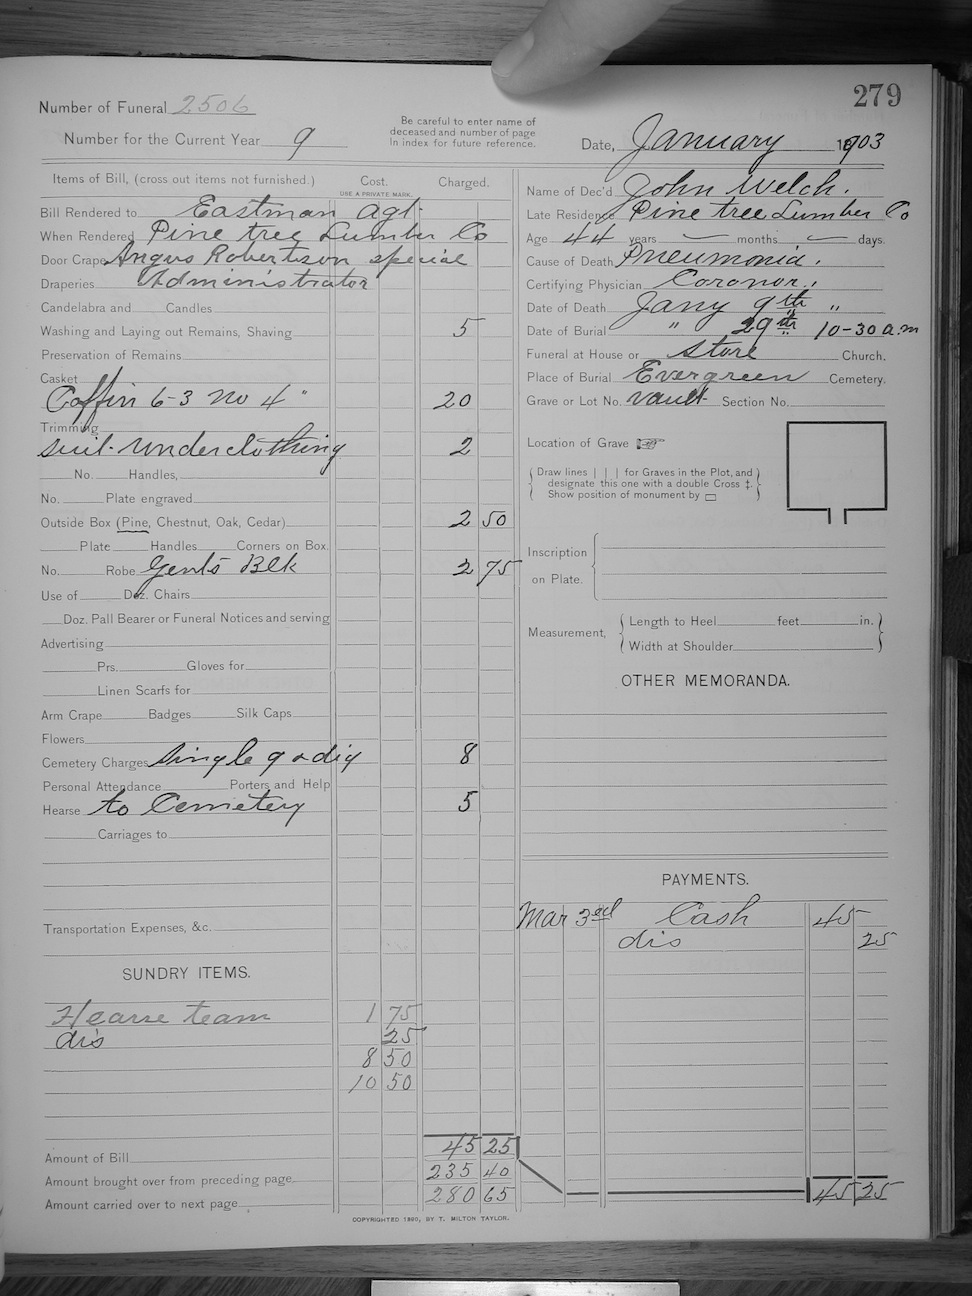 279
Number of Funeral 2506
Number for the Current Year 9
Be careful to enter name of
deceased and number of page
in index for future reference.
Date, January 1903
Items of Bill, (cross out items not furnished.)
Cost.
USE A PRIVATE MARK.
Charged.
Bill Rendered to Eastman agt.
When Rendered Pine tree Lumber Co
Door Crape Angus Robertson special
Draperies Administrator
Candelabra and Candles
Washing and Laying out Remains, Shaving 5
Preservation of Remains
Casket
Coffin 6-3 no 4 " 20
Trimming
suit. underclothing 2
No. Handles,
No. Plate engraved
Outside Box (Pine, Chestnut, Oak, Cedar) 2 50
Plate Handles Corners on Box.
No. Robe Gents Blk 2 75
Use of Doz. Chairs
Doz. Pall Bearer or Funeral Notices and serving
Advertising
Prs. Gloves for
Linen Scarfs for
Arm Crape Badges Silk Caps
Flowers
Cemetery Charges single g & dig 8
Personal Attendance Porters and Help
Hearse to Cemetery 5
Carriages to
Transportation Expenses, &c.
SUNDRY ITEMS.
Hearse team 1 75
dis 25
8 50
10 50
45 25
Amount of Bill
Amount brought over from preceding page 235 40
Amount carried over to next page 280 65
Name of Dec'd John Welch.
Late Residence Pine tree Lumber Co
Age 44 years — months — days.
Cause of Death Pneumonia.
Certifying Physician Coronor.,
Date of Death Jany 9th "
Date of Burial " 29th 10-30 a.m
Funeral at House or store Church.
Place of Burial Evergreen Cemetery.
Grave or Lot No. vault Section No.
Location of Grave
Draw lines | | | for Graves in the Plot, and
designate this one with a double Cross ‡.
Show position of monument by ▭
Inscription
on Plate.
Measurement, Length to Heel feet in.
Width at Shoulder
OTHER MEMORANDA.
PAYMENTS.
Mar 3rd Cash 45
dis 25
45 25
COPYRIGHTED 1890, BY T. MILTON TAYLOR.